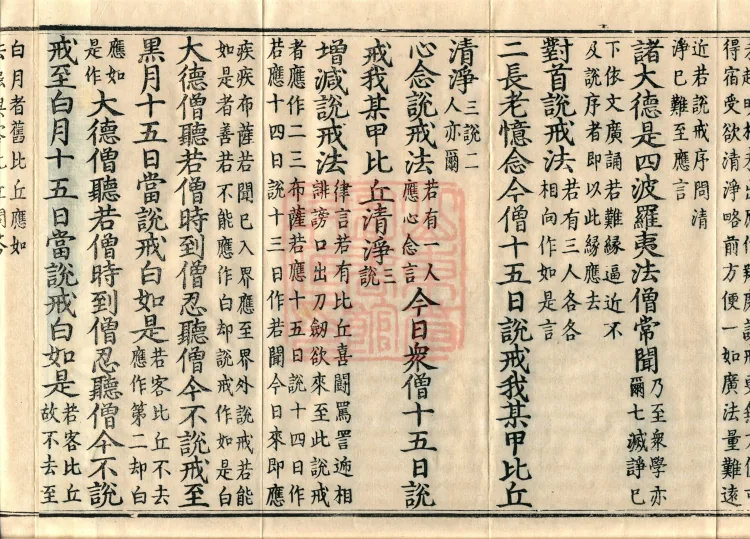 得宿受欲清淨略前方便一如廣法量難遠
近若說戒序問清
淨已難至應言
諸大德是四波羅夷法僧常聞乃至衆學亦爾七滅諍已
下依文廣誦若難緣逼近不
及說序者即以此緣應去
對首說戒法若有三人各各相向作如是言
二長老憶念今僧十五日說戒我某甲比丘
清淨三說二人亦爾
心念說戒法若有一人應心念言今日衆僧十五日說
戒我某甲比丘清淨三說
增減說戒法律言若有比丘喜鬪罵詈遞相誹謗口出刀劒欲來至此說戒
者應作二三布薩若應十五日說十四日作
若應十四日說十三日作若聞今日來即應
疾疾布薩若聞已入界應至界外說戒若能
如是者善若不能應作白却說戒作如是白
大德僧聽若僧時到僧忍聽僧今不說戒至
黑月十五日當說戒白如是若客比丘不去應作第二却白
應如是作大德僧聽若僧時到僧忍聽僧今不說
戒至白月十五日當說戒白如是若客比丘故不去至
白月者舊比丘應如